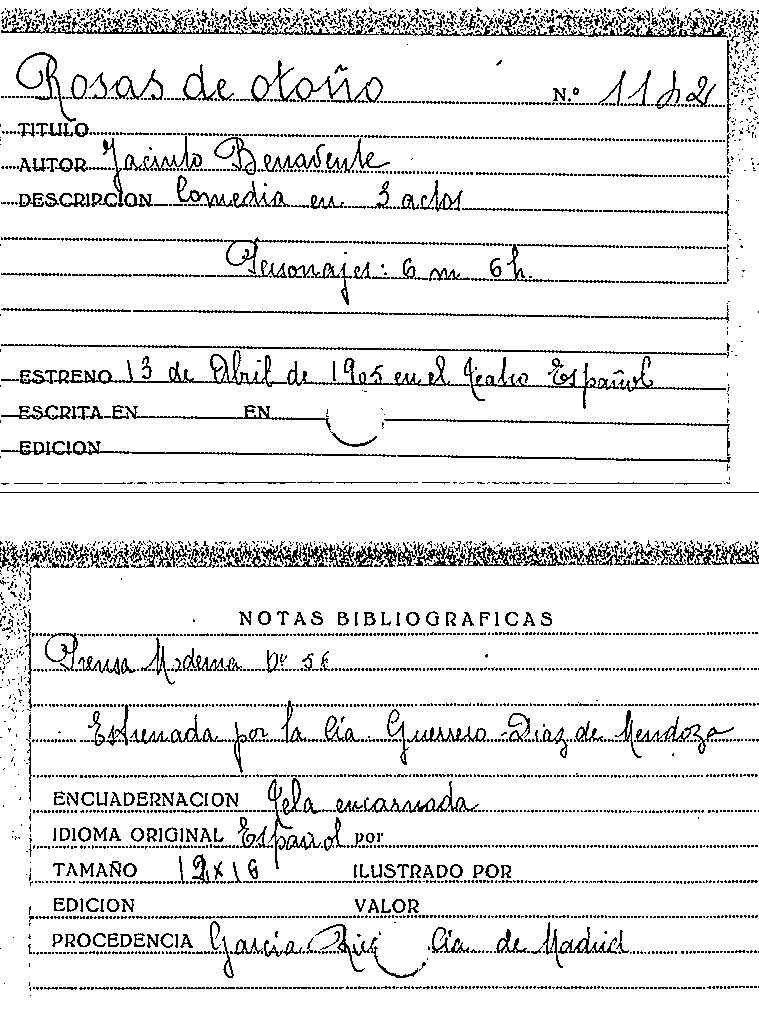 Rosas de otoño N.º
TITULO
AUTOR Jacinto Benavente
DESCRIPCION Comedia en 3 actos
Personajes: 6 m 6 h.
ESTRENO 13 de Abril de 1905 en el Teatro Español
ESCRITA EN EN
EDICION
NOTAS BIBLIOGRAFICAS
Prensa Moderna Nº 56
Estrenada por la Cía. Guerrero-Diaz de Mendoza
ENCUADERNACION Tela encarnada
IDIOMA ORIGINAL Español por
TAMAÑO 12x16 ILUSTRADO POR
EDICION VALOR
PROCEDENCIA García Cía. de Madrid